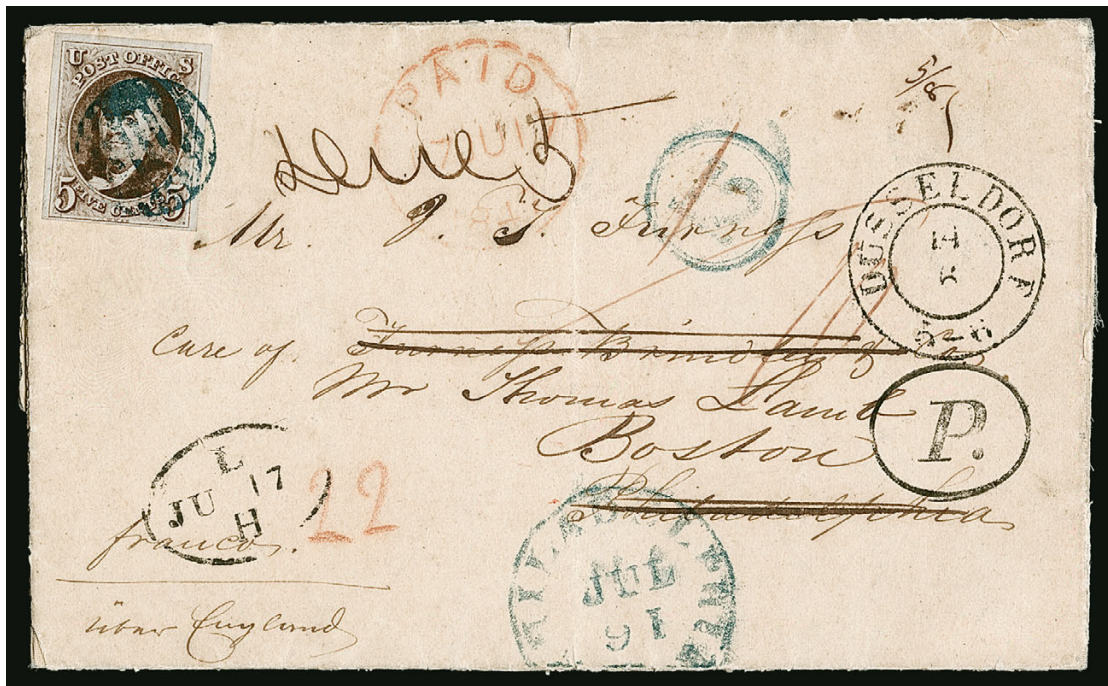 U S
POST OFFICE
5 FIVE CENTS 5
PAID
5
5/8
5
DUSSELDORF
14
6
5-6
Mr. J. T. Furness
Care of Furness Brinley & Co.
Mr Thomas Lamb
Boston
Philadelphia
P.
L
JU 17
H
22
franco.
über England
PHILADELPHIA
JUL